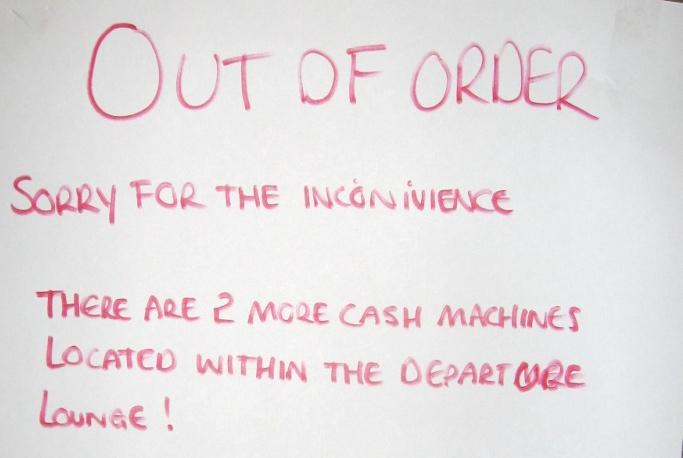 OUT OF ORDER
SORRY FOR THE INCONIVIENCE
THERE ARE 2 MORE CASH MACHINES
LOCATED WITHIN THE DEPARTURE
LOUNGE!